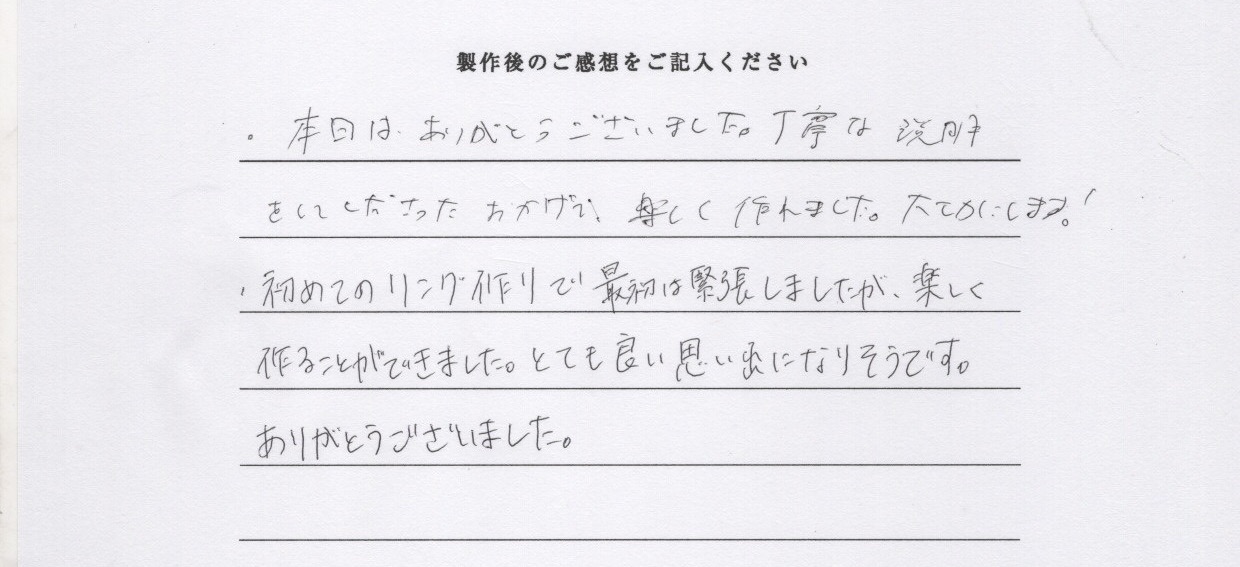 製作後のご感想をご記入ください
・本日は、ありがとうございました。丁寧な説明
をしてくださったおかげで、楽しく作れました。大切にします!
・初めてのリング作りで最初は緊張しましたが、楽しく
作ることができました。とても良い思い出になりそうです。
ありがとうございました。